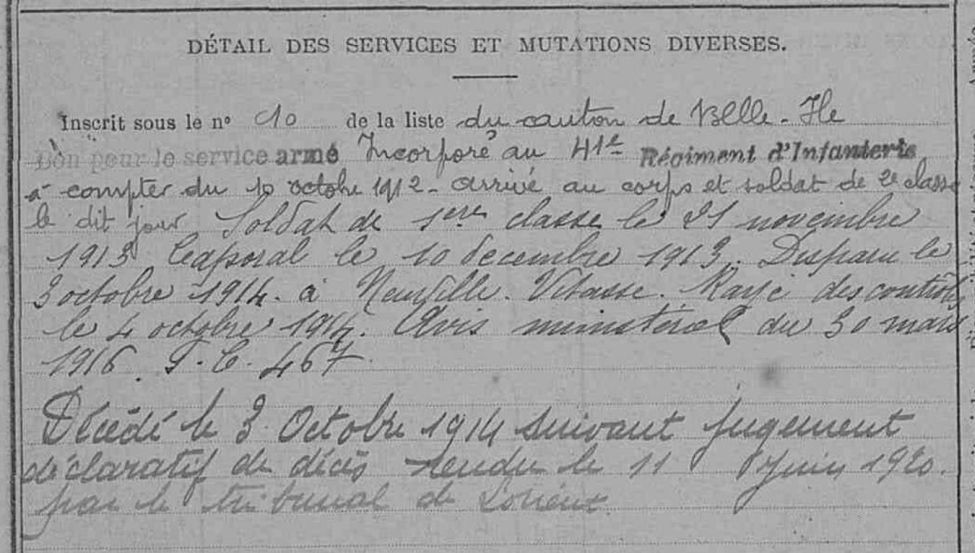 DÉTAIL DES SERVICES ET MUTATIONS DIVERSES.
Inscrit sous le n° 10 de la liste du canton de Belle-Ile
Bon pour le service armé Incorporé au 41e Régiment d'Infanterie
à compter du 10 octobre 1912 - arrivé au corps et soldat de 2e classe
le dit jour. Soldat de 1ere classe le 21 novembre
1913 Caporal le 10 decembre 1913. Disparu le
3 octobre 1914. à Neuville. Vitasse. Rayé des contrôles
le 4 octobre 1914. Avis ministériel du 30 mars
1916. F. C. 467.
Décédé le 3 Octobre 1914 suivant jugement
déclaratif de décès rendu le 11 Juin 1920.
par le tribunal de Lorient